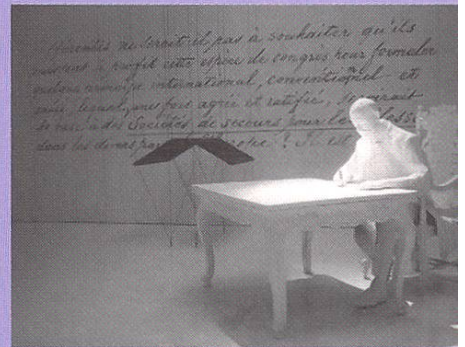 différentes ne serait-il pas à souhaiter qu'ils
à profit cette espèce de congrès pour formuler
quelque principe international, conventionnel et
lequel, une fois agréé et ratifié, servirait
de base à des Sociétés de secours pour le
dans les divers pa ? Il est